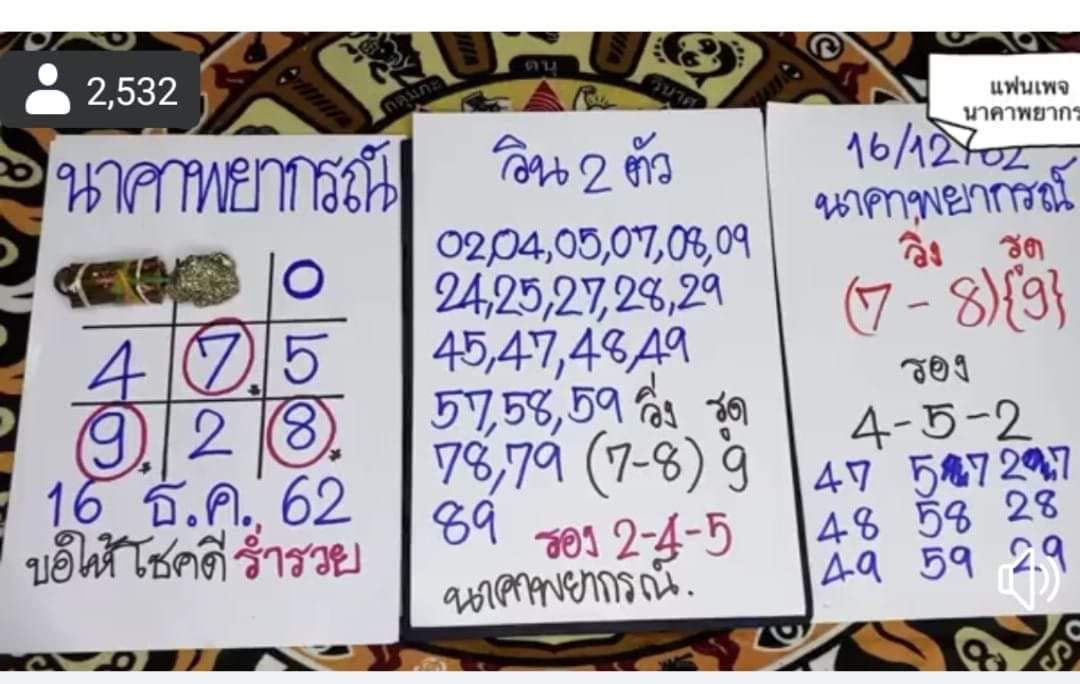 2,532
กตุเกะ
ดนุ
แฟนเพจ
นาคาพยากร
นาคาพยากรณ์
0
4 7 5
9 2 8
16 ธ.ค. 62
ขอให้โชคดี ร่ำรวย
วิน 2 ตัว
02,04,05,07,08,09
24,25,27,28,29
45,47,48,49
57,58,59 วิ่ง รูด
78,79 (7-8) 9
89 รอง 2-4-5
นาคาพยากรณ์.
16/12/62
นาคาพยากรณ์
วิ่ง รูด
(7-8){9}
รอง
4-5-2
47 57 27
48 58 28
49 59 29